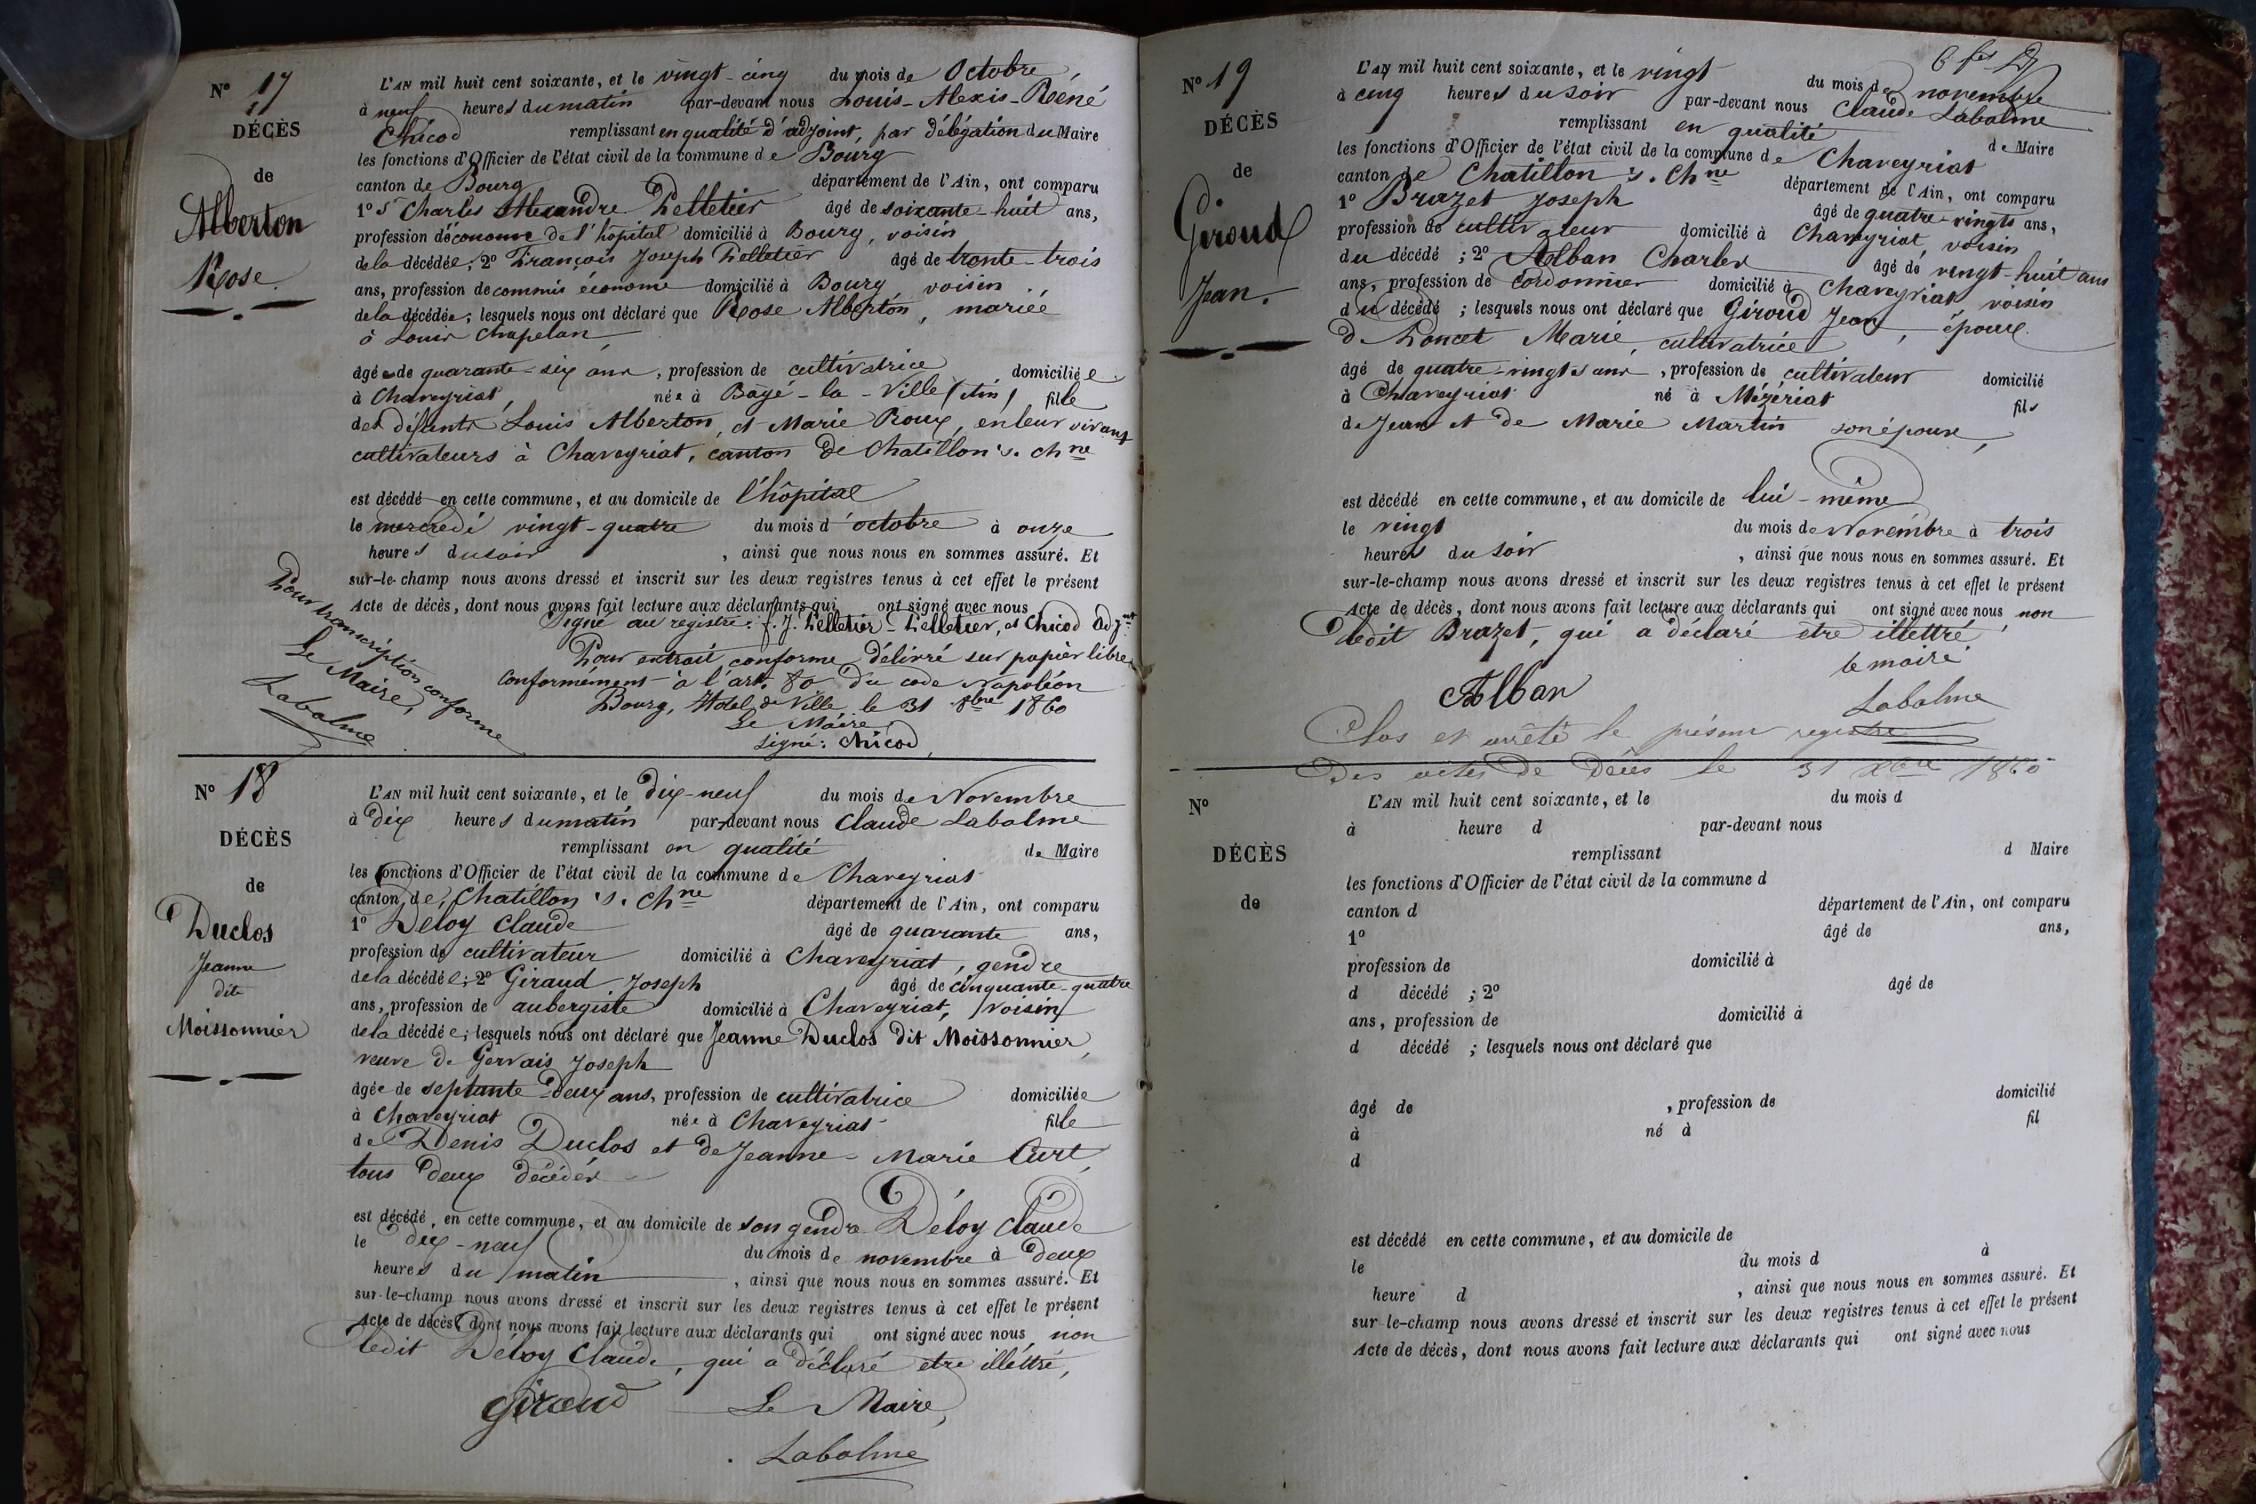 N° 17
DÉCÈS
de
Alberton
Rose.
L'AN mil huit cent soixante, et le vingt-cinq du mois de Octobre
à neuf heures du matin par-devant nous Louis-Alexis-Réné
Chicod remplissant en qualité d'adjoint, par délégation du Maire
les fonctions d'Officier de l'état civil de la commune de Bourg
canton de Bourg département de l'Ain, ont comparu
1° Sr Charles Alexandre Pelletier âgé de soixante-huit ans,
profession d'économe de l'hôpital domicilié à Bourg, voisin
de la décédée; 2° François Joseph Pelletier âgé de trente-trois
ans, profession de commis économe domicilié à Bourg, voisin
de la décédée; lesquels nous ont déclaré que Rose Alberton, mariée
à Louis Chapelan
âgée de quarante-six ans, profession de cultivatrice domiciliée
à Chaveyriat, née à Bâgé-la-Ville (Ain) fille
des défunts Louis Alberton, et Marie Roux, en leur vivant
cultivateurs à Chaveyriat, canton de Chatillon s. Chne
est décédé en cette commune, et au domicile de l'hôpital
le mercredi vingt-quatre du mois d'octobre à onze
heures du soir, ainsi que nous nous en sommes assuré. Et
sur-le-champ nous avons dressé et inscrit sur les deux registres tenus à cet effet le présent
Acte de décès, dont nous avons fait lecture aux déclarants qui ont signé avec nous
Signé au registre: f. J. Pelletier - Pelletier, et Chicod adjnt
Pour extrait conforme délivré sur papier libre
conformément à l'art. 80 du code Napoléon
Bourg, Hôtel de Ville le 31 8bre 1860
Le Maire
signé: Chicod
Pour transcription conforme
Le Maire,
Labalme
N° 18
DÉCÈS
de
Duclos
Jeanne
dite
Moissonnier
L'AN mil huit cent soixante, et le dix-neuf du mois de Novembre
à dix heures du matin par-devant nous Claude Labalme
remplissant en qualité de Maire
les fonctions d'Officier de l'état civil de la commune de Chaveyriat
canton de Chatillon s. Chne département de l'Ain, ont comparu
1° Déloy Claude âgé de quarante ans,
profession de cultivateur domicilié à Chaveyriat, gendre
de la décédée; 2° Giraud Joseph âgé de cinquante-quatre
ans, profession de aubergiste domicilié à Chaveyriat, voisin
de la décédée; lesquels nous ont déclaré que Jeanne Duclos dit Moissonnier,
veuve de Gervais Joseph
âgée de septante-deux ans, profession de cultivatrice domiciliée
à Chaveyriat née à Chaveyriat fille
de Denis Duclos et de Jeanne-Marie Curt,
tous deux décédés
est décédé, en cette commune, et au domicile de son gendre Déloy Claude
le dix-neuf du mois de novembre à deux
heures du matin, ainsi que nous nous en sommes assuré. Et
sur-le-champ nous avons dressé et inscrit sur les deux registres tenus à cet effet le présent
Acte de décès, dont nous avons fait lecture aux déclarants qui ont signé avec nous non
ledit Déloy Claude, qui a déclaré etre illéttré,
Giraud Le Maire,
Labalme
N° 19
DÉCÈS
de
Giroud
Jean.
L'AN mil huit cent soixante, et le vingt du mois de novembre
à cinq heures du soir par-devant nous Claude Labalme
remplissant en qualité de Maire
les fonctions d'Officier de l'état civil de la commune de Chaveyriat
canton de Chatillon s. Chne département de l'Ain, ont comparu
1° Brazet Joseph âgé de quatre-vingts ans,
profession de cultivateur domicilié à Chaveyriat, voisin
du décédé; 2° Alban Charles âgé de vingt-huit ans
ans, profession de cordonnier domicilié à Chaveyriat, voisin
du décédé; lesquels nous ont déclaré que Giroud Jean, époux
d Poncet Marie, cultivatrice
âgé de quatre-vingts ans, profession de cultivateur domicilié
à Chaveyriat né à Mézériat fils
de Jean et de Marie Martin son épouse,
est décédé en cette commune, et au domicile de lui-même
le vingt du mois de Novembre à trois
heures du soir, ainsi que nous nous en sommes assuré. Et
sur-le-champ nous avons dressé et inscrit sur les deux registres tenus à cet effet le présent
Acte de décès, dont nous avons fait lecture aux déclarants qui ont signé avec nous, non
ledit Brazet, qui a déclaré etre illettré
le maire
Alban Labalme
Clos et arrêté le présent registre
des actes de Décès le 31 Xbre 1860
N°
DÉCÈS
de
L'AN mil huit cent soixante, et le du mois d
à heure d par-devant nous
remplissant d Maire
les fonctions d'Officier de l'état civil de la commune d
canton d département de l'Ain, ont comparu
1° âgé de ans,
profession de domicilié à
d décédé ; 2° âgé de
ans, profession de domicilié à
d décédé ; lesquels nous ont déclaré que
âgé de , profession de domicilié
à né à fil
d
est décédé en cette commune, et au domicile de
le du mois d à
heure d , ainsi que nous nous en sommes assuré. Et
sur-le-champ nous avons dressé et inscrit sur les deux registres tenus à cet effet le présent
Acte de décès, dont nous avons fait lecture aux déclarants qui ont signé avec nous